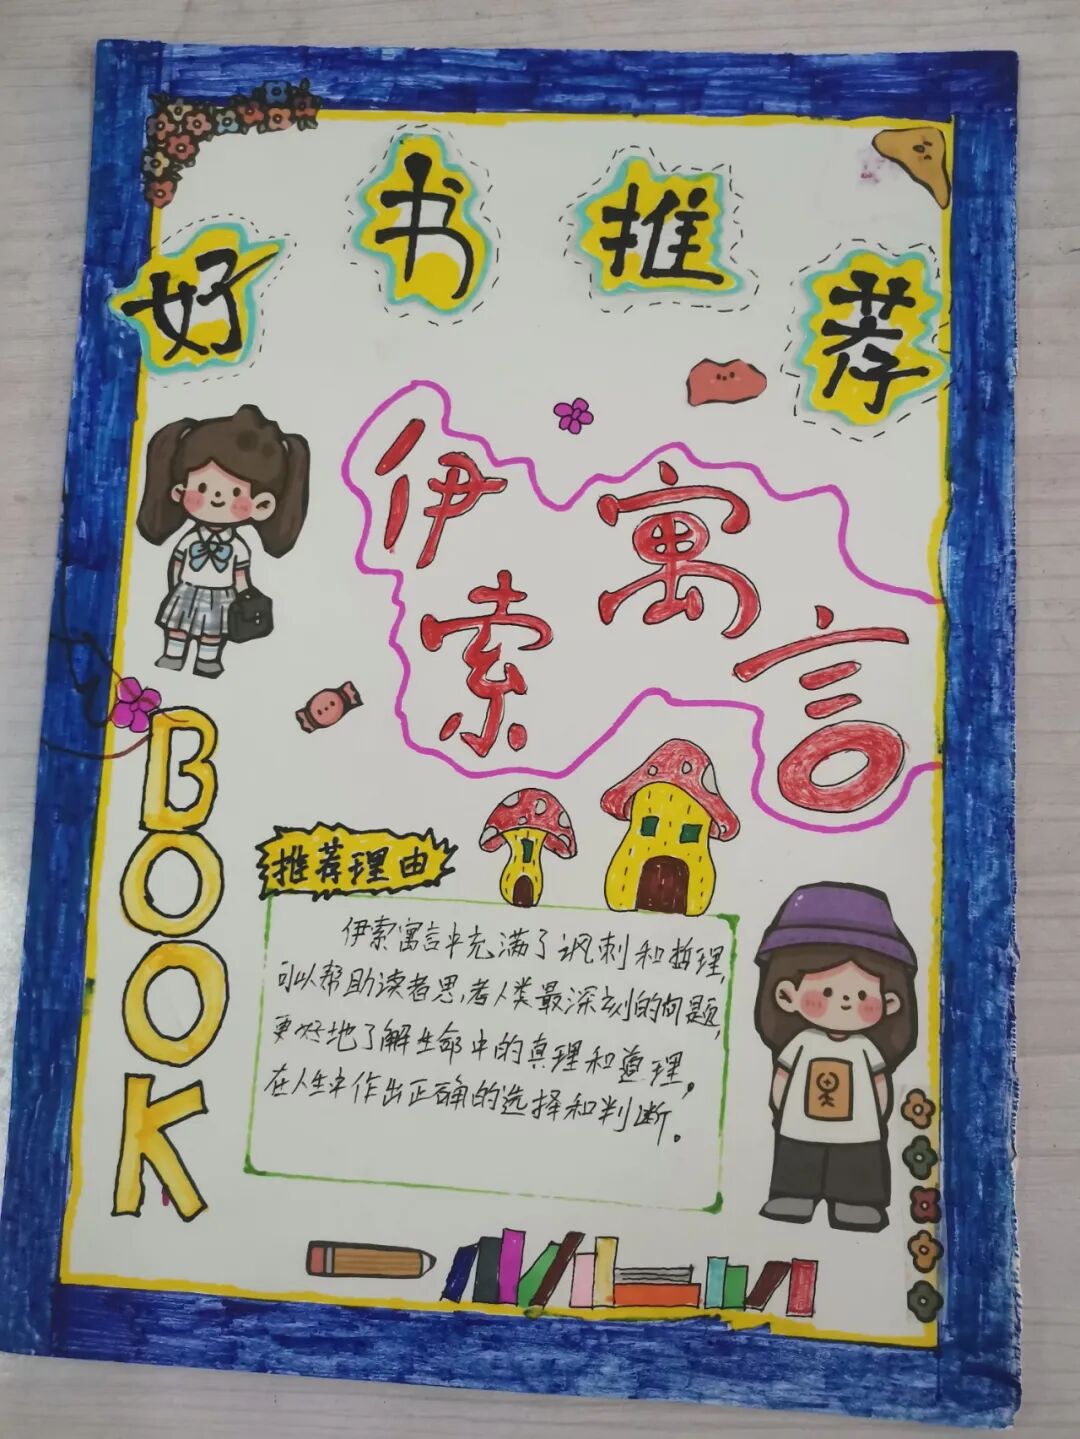 好书推荐
伊索寓言
BOOK
推荐理由
伊索寓言中充满了讽刺和哲理,
可以帮助读者思考人类最深刻的问题,
更好地了解生命中的真理和道理,
在人生中作出正确的选择和判断。